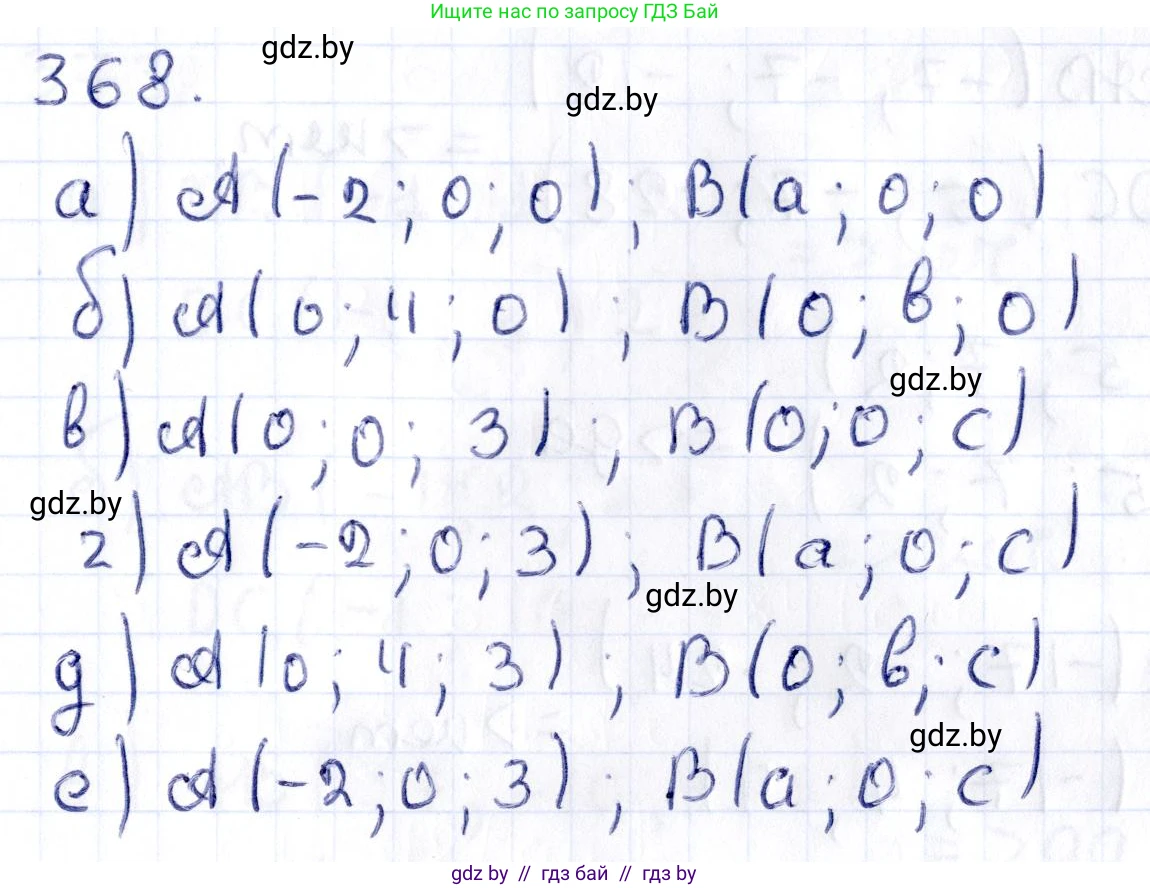 Ищите нас по запросу ГДЗ Бай
368.
gdz.by
gdz.by
а) A(-2; 0; 0); B(a; 0; 0)
б) A(0; 4; 0); B(0; в; 0)
gdz.by
в) A(0; 0; 3); B(0; 0; c)
gdz.by
г) A(-2; 0; 3); B(a; 0; c)
gdz.by
д) A(0; 4; 3); B(0; в; c)
gdz.by
е) A(-2; 0; 3); B(a; 0; c)
gdz.by // гдз бай // гдз by